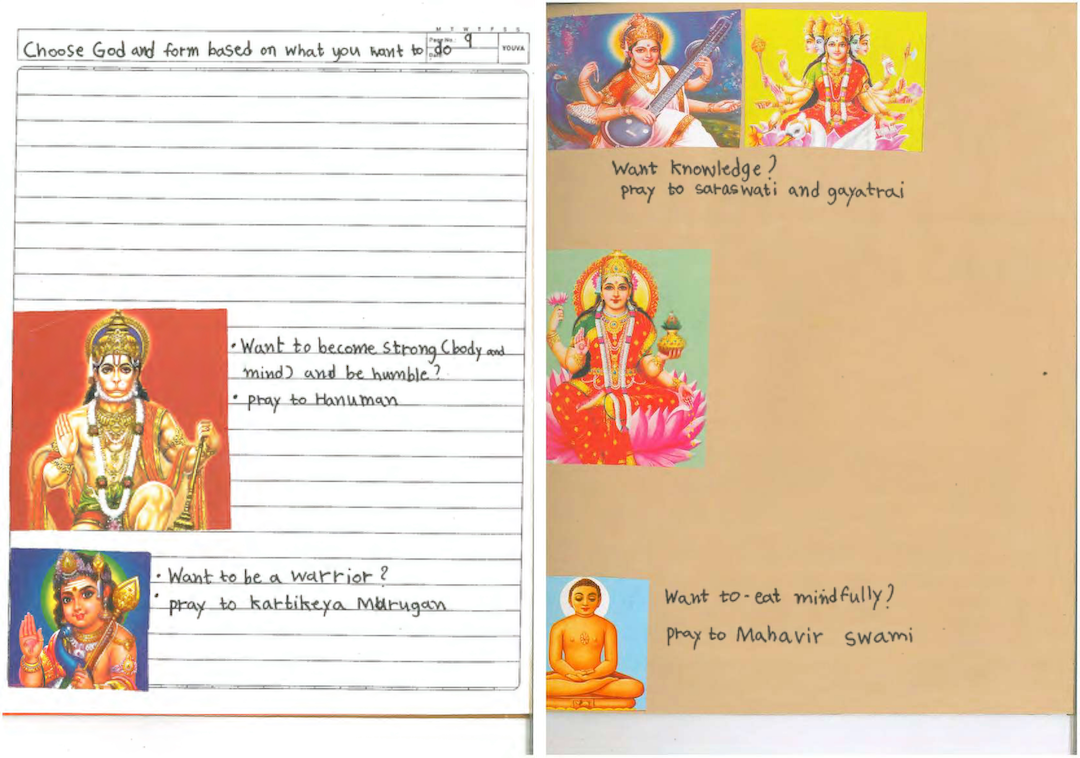 M T W T F S S
Page No.: 9
Date:
YOUVA
Choose God and form based on what you want to do
• Want to become strong (body and
mind) and be humble?
• pray to Hanuman
• Want to be a warrior?
• pray to kartikeya Murugan
Want knowledge?
pray to saraswati and gayatrai
Want to-eat mindfully?
pray to Mahavir swami